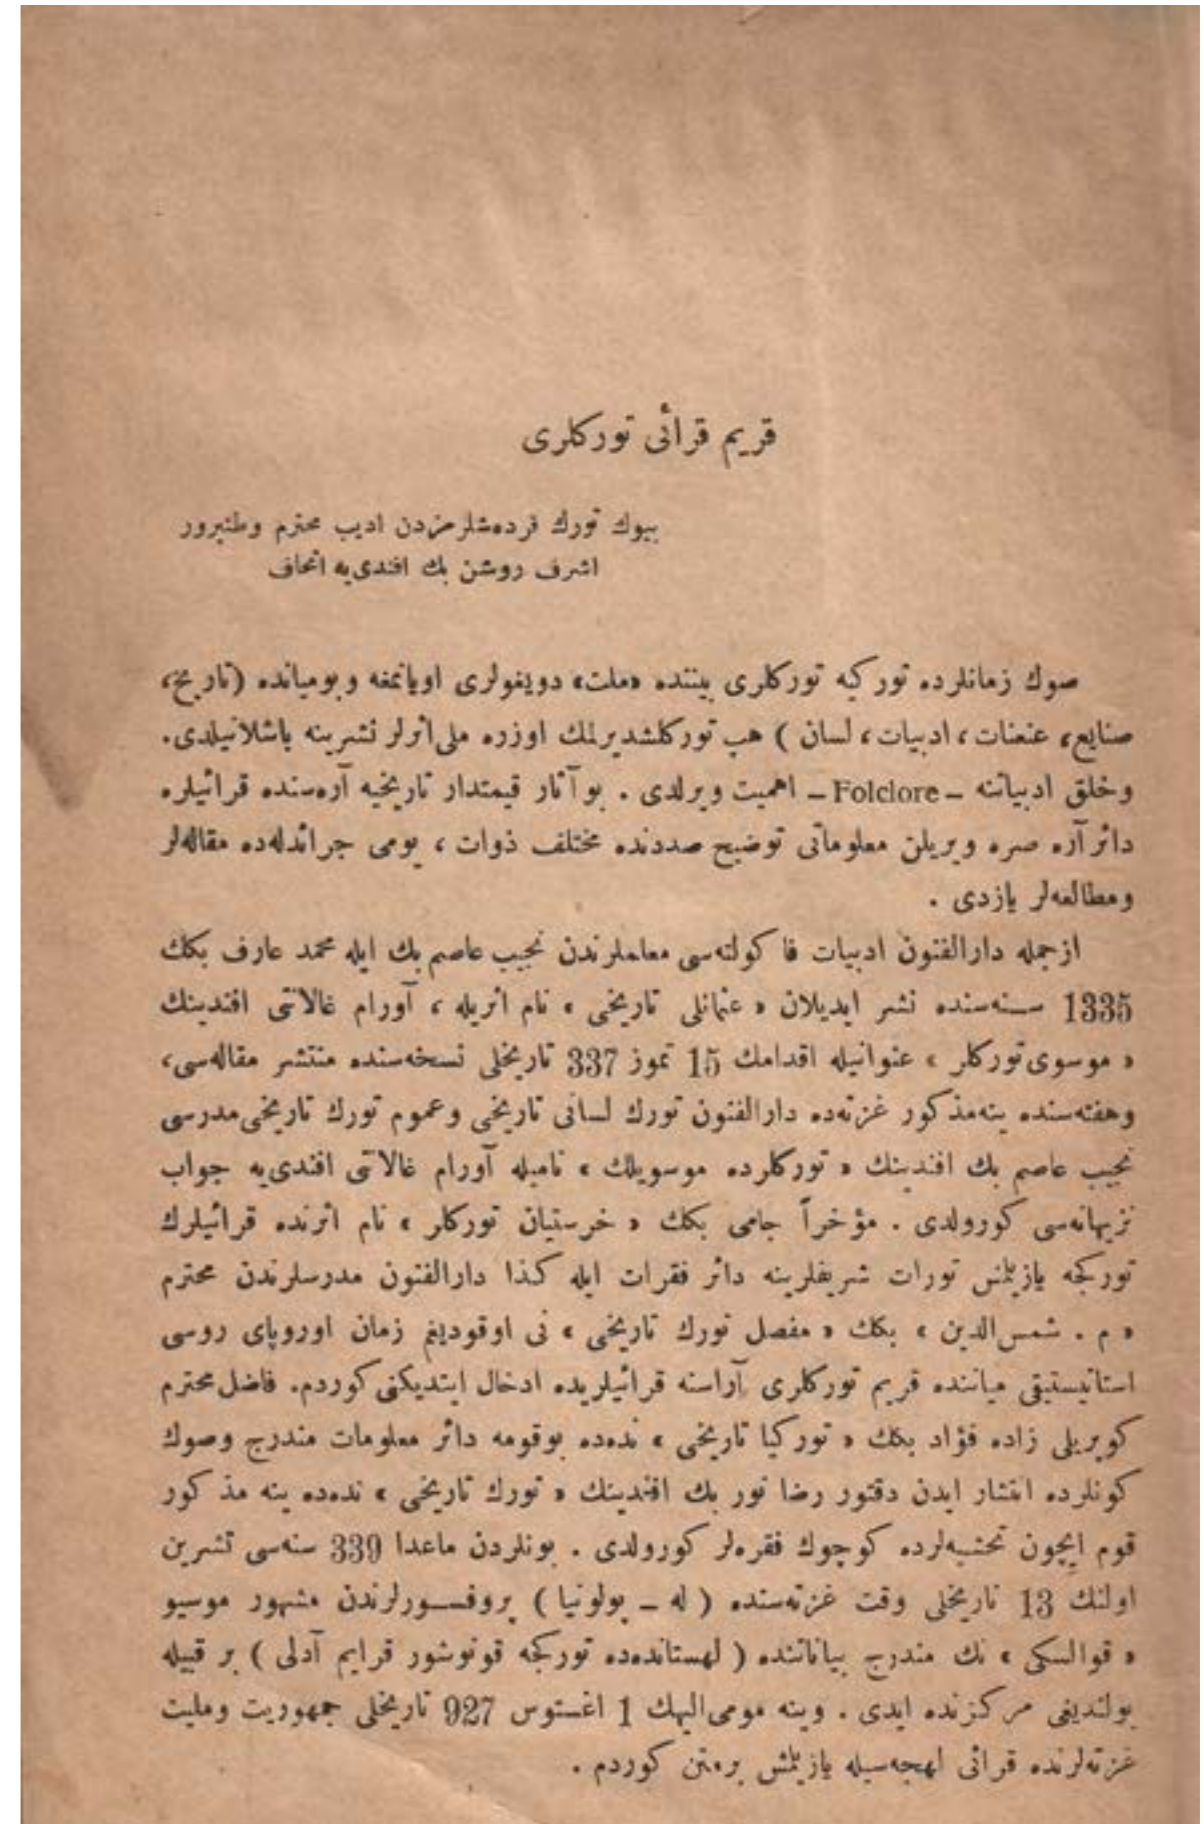 قریم قرائی تورکلری
بیوك تورك قردەشلرمزدن ادیب محترم وطنپرور
اشرف روشن بك افندی‌یه اتحاف
صوك زمانلرده تورکیه تورکلری بیننده «ملت» دویغولری اویانمغه وبومیانده (تاریخ،
صنایع، عنعنات، ادبیات، لسان ) هپ تورکلشدیرلمك اوزره ملی اثرلر نشرینه باشلانیلدی.
وخلق ادبیاتنه ـ Folclore ـ اهمیت ویرلدی . بو آثار قیمتدار تاریخیه آره‌سنده قرائیلره
دائر آره صره ویریلن معلوماتی توضیح صددنده مختلف ذوات ، یومی جرائدله‌ده مقاله‌لر
ومطالعه‌لر یازدی .
ازجمله دارالفنون ادبیات فاکولته‌سی معلملرندن نجیب عاصم بك ایله محمد عارف بکك
1335 سنه‌سنده نشر ایدیلان « عثمانلی تاریخی » نام اثریله ، آورام غالانتی افندینك
« موسوی تورکلر » عنوانیله اقدامك 15 تموز 337 تاریخلی نسخه‌سنده منتشر مقاله‌سی،
وهفته‌سنده ینه‌مذکور غزته‌ده دارالفنون تورك لسانی تاریخی وعموم تورك تاریخی مدرسی
نجیب عاصم بك افندینك « تورکلرده موسویلك » نامیله آورام غالانتی افندی‌یه جواب
نزیهانه‌سی کورولدی . مؤخراً جامی بکك « خرستیان تورکلر » نام اثرنده قرائیلرك
تورکجه یازیلمش تورات شریفلرینه دائر فقرات ایله کذا دارالفنون مدرسلرندن محترم
« م . شمس‌الدین » بکك « مفصل تورك تاریخی » نی اوقودیغم زمان اوروپای روسی
استاتیستیقی میاننده قریم تورکلری آراسنه قرائیلریده ادخال ایتدیکنی کوردم. فاضل محترم
کوپریلی زاده فؤاد بکك « تورکیا تاریخی » نده‌ده بوقومه دائر معلومات مندرج وصوك
کونلرده انتشار ایدن دقتور رضا نور بك افندینك « تورك تاریخی » نده‌ده ینه مذکور
قوم ایچون تحشیه‌لرده کوچوك فقره‌لر کورولدی . بونلردن ماعدا 339 سنه‌سی تشرین
اولنك 13 تاریخلی وقت غزته‌سنده ( له ـ پولونیا ) پروفسورلرندن مشهور موسیو
« قوالسکی » نك مندرج بیاناتنده ( لهستانده‌ده تورکجه قونوشور قرایم آدلی ) بر قبیله
بولندیغی مرکزنده ایدی . وینه مومی‌الیهك 1 اغستوس 927 تاریخلی جمهوریت وملیت
غزته‌لرنده قرائی لهجه‌سیله یازیلمش برمتن کوردم .